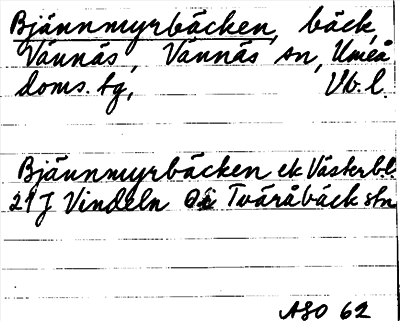 Bjännmyrbäcken, bäck,
Vännäs, Vännäs sn, Umeå
doms. tg, Vb. l.
Bjännmyrbäcken ek Västerb.l.
21 J Vindeln Tväråbäck stn
ASO 62